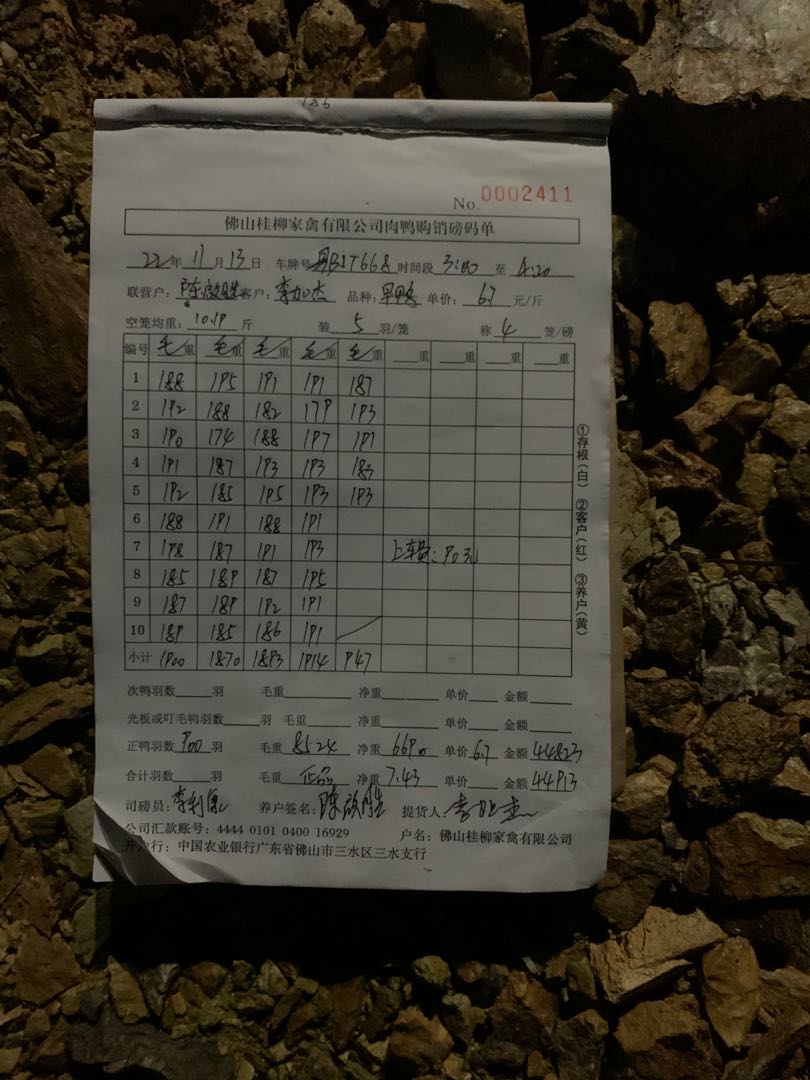 186
No. 0002411
佛山桂柳家禽有限公司肉鸭购销磅码单
22年 11月 13日 车牌号 粤BJT668 时间段 3:00 至 4:20
联营户: 陈啟胜 客户: 李加杰 品种: 单价: 6.7 元/斤
空笼均重: 10.19 斤 装 5 羽/笼 称 4 笼/磅
编号 毛重 毛重 毛重 毛重 毛重 重 重 重 重
1 188 195 191 191 187
2 192 188 182 179 193
3 190 174 188 197 191
4 191 187 193 193 183
5 192 185 195 193 193
6 188 191 188 191
7 198 187 191 193 上车费: 90元
8 185 189 187 195
9 187 189 192 191
10 189 185 186 191
小计 1900 1870 1893 1914 947
①存根(白) ②客户(红) ③养户(黄)
次鸭羽数 羽 毛重 净重 单价 金额
光板或叮毛鸭羽数 羽 毛重 净重 单价 金额
正鸭羽数 900 羽 毛重 8524 净重 6690 单价 6.7 金额 44823
合计羽数 羽 毛重 正品 净重 7.43 单价 金额 44913
司磅员: 养户签名: 陈啟胜 提货人:
公司汇款账号: 4444 0101 0400 16929 户名: 佛山桂柳家禽有限公司
开户行: 中国农业银行广东省佛山市三水区三水支行